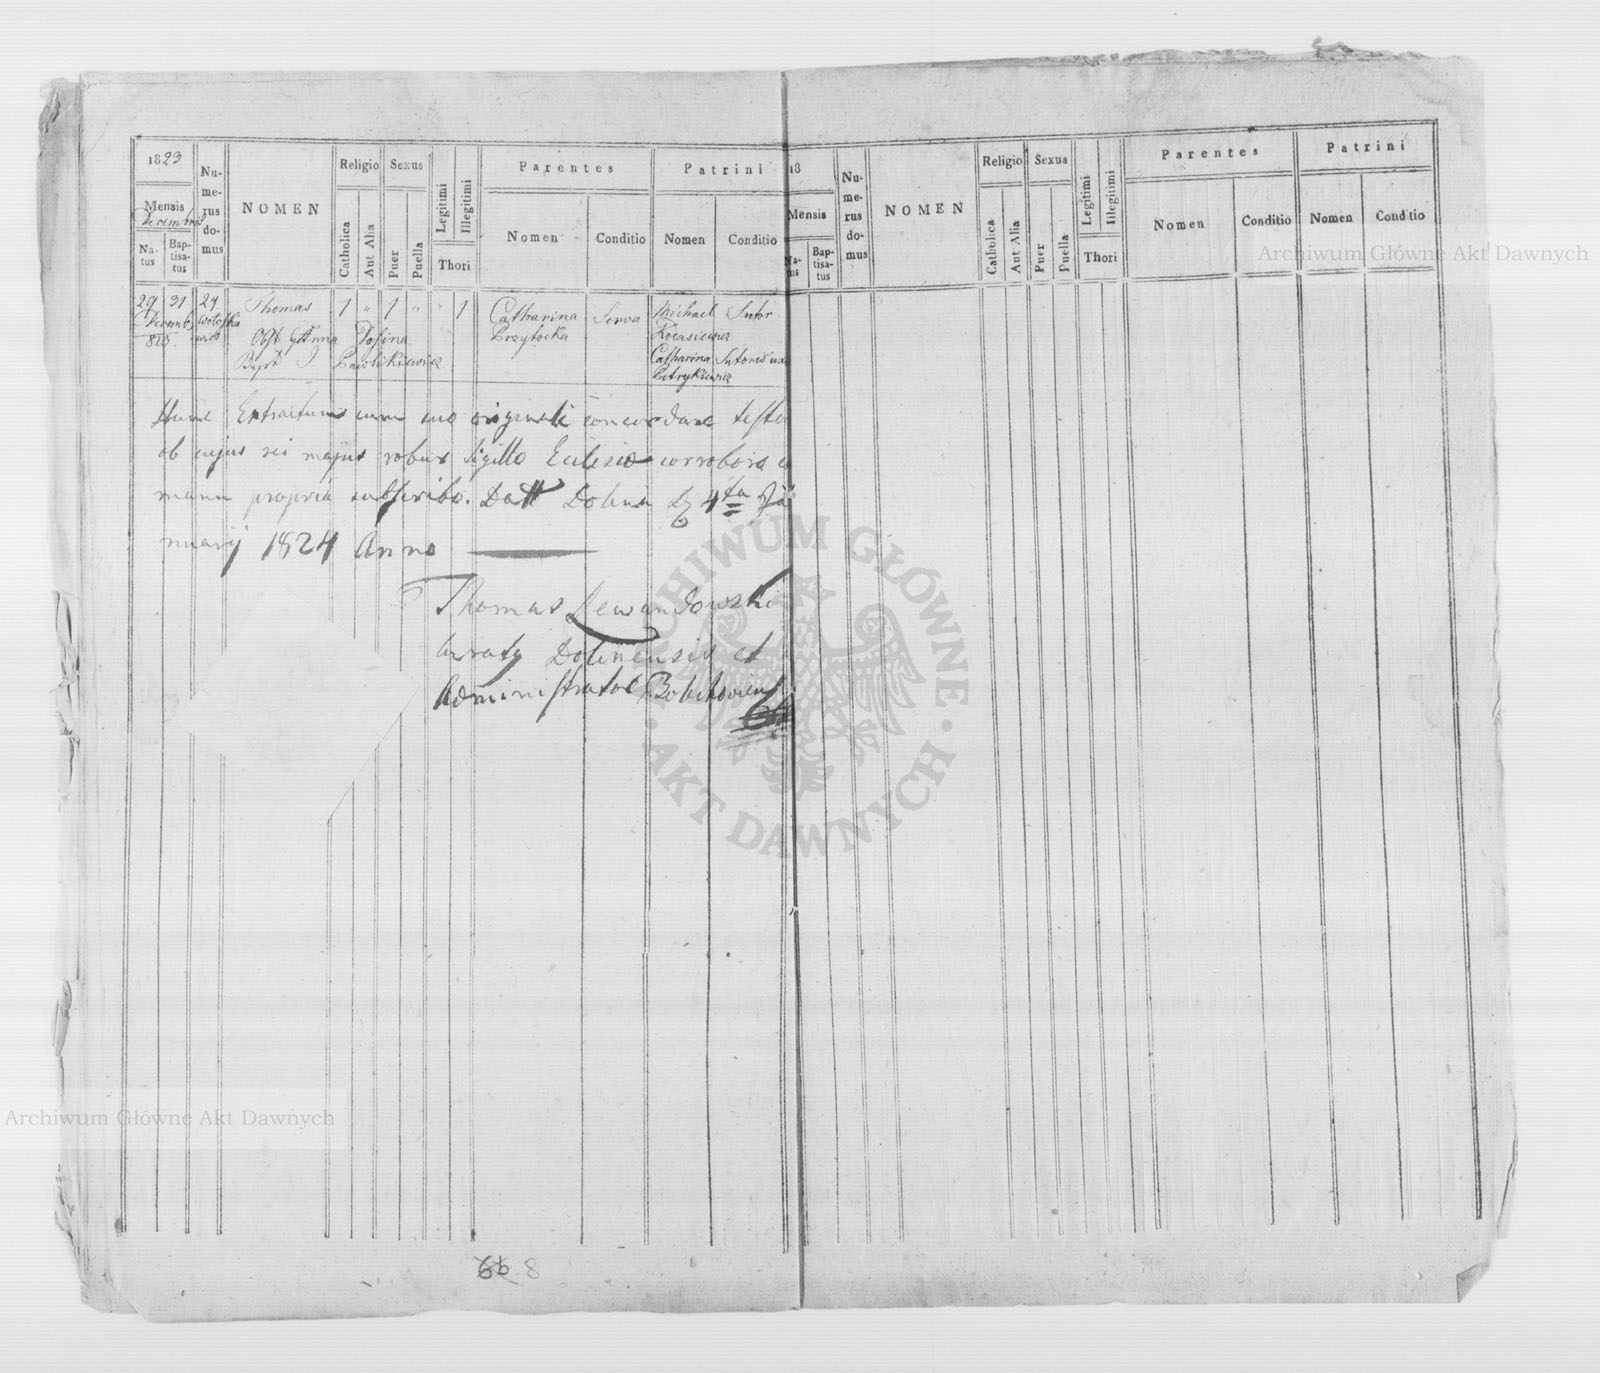 1823
Mensis
Decembris
Natus
Baptisatus
Numerus domus
NOMEN
Religio
Catholica
Aut Alia
Sexus
Puer
Puella
Legitimi
Illegitimi
Thori
Parentes
Nomen
Conditio
Patrini
Nomen
Conditio
29 31 24 Thomas 1 " 1 " " 1 Catharina Serva Michael Sutor
Decemb
823.
Obst
Bapt
Catharina
Hunc Extractum cum suo originali concordare testor
ob cujus rei majus robur Sigillo Eclesia corroboro
manu propria subscribo. Datt Dolina D 4ta Ja
nuarij 1824 Anno
Thomas Lewandowski
Dolinensis et
Administrator
18
Mensis
Natus
Baptisatus
Numerus domus
NOMEN
Religio
Catholica
Aut Alia
Sexus
Puer
Puella
Legitimi
Illegitimi
Thori
Parentes
Nomen
Conditio
Patrini
Nomen
Conditio
8
Archiwum Główne Akt Dawnych
ARCHIWUM GŁÓWNE · AKT DAWNYCH ·
Archiwum Główne Akt Dawnych